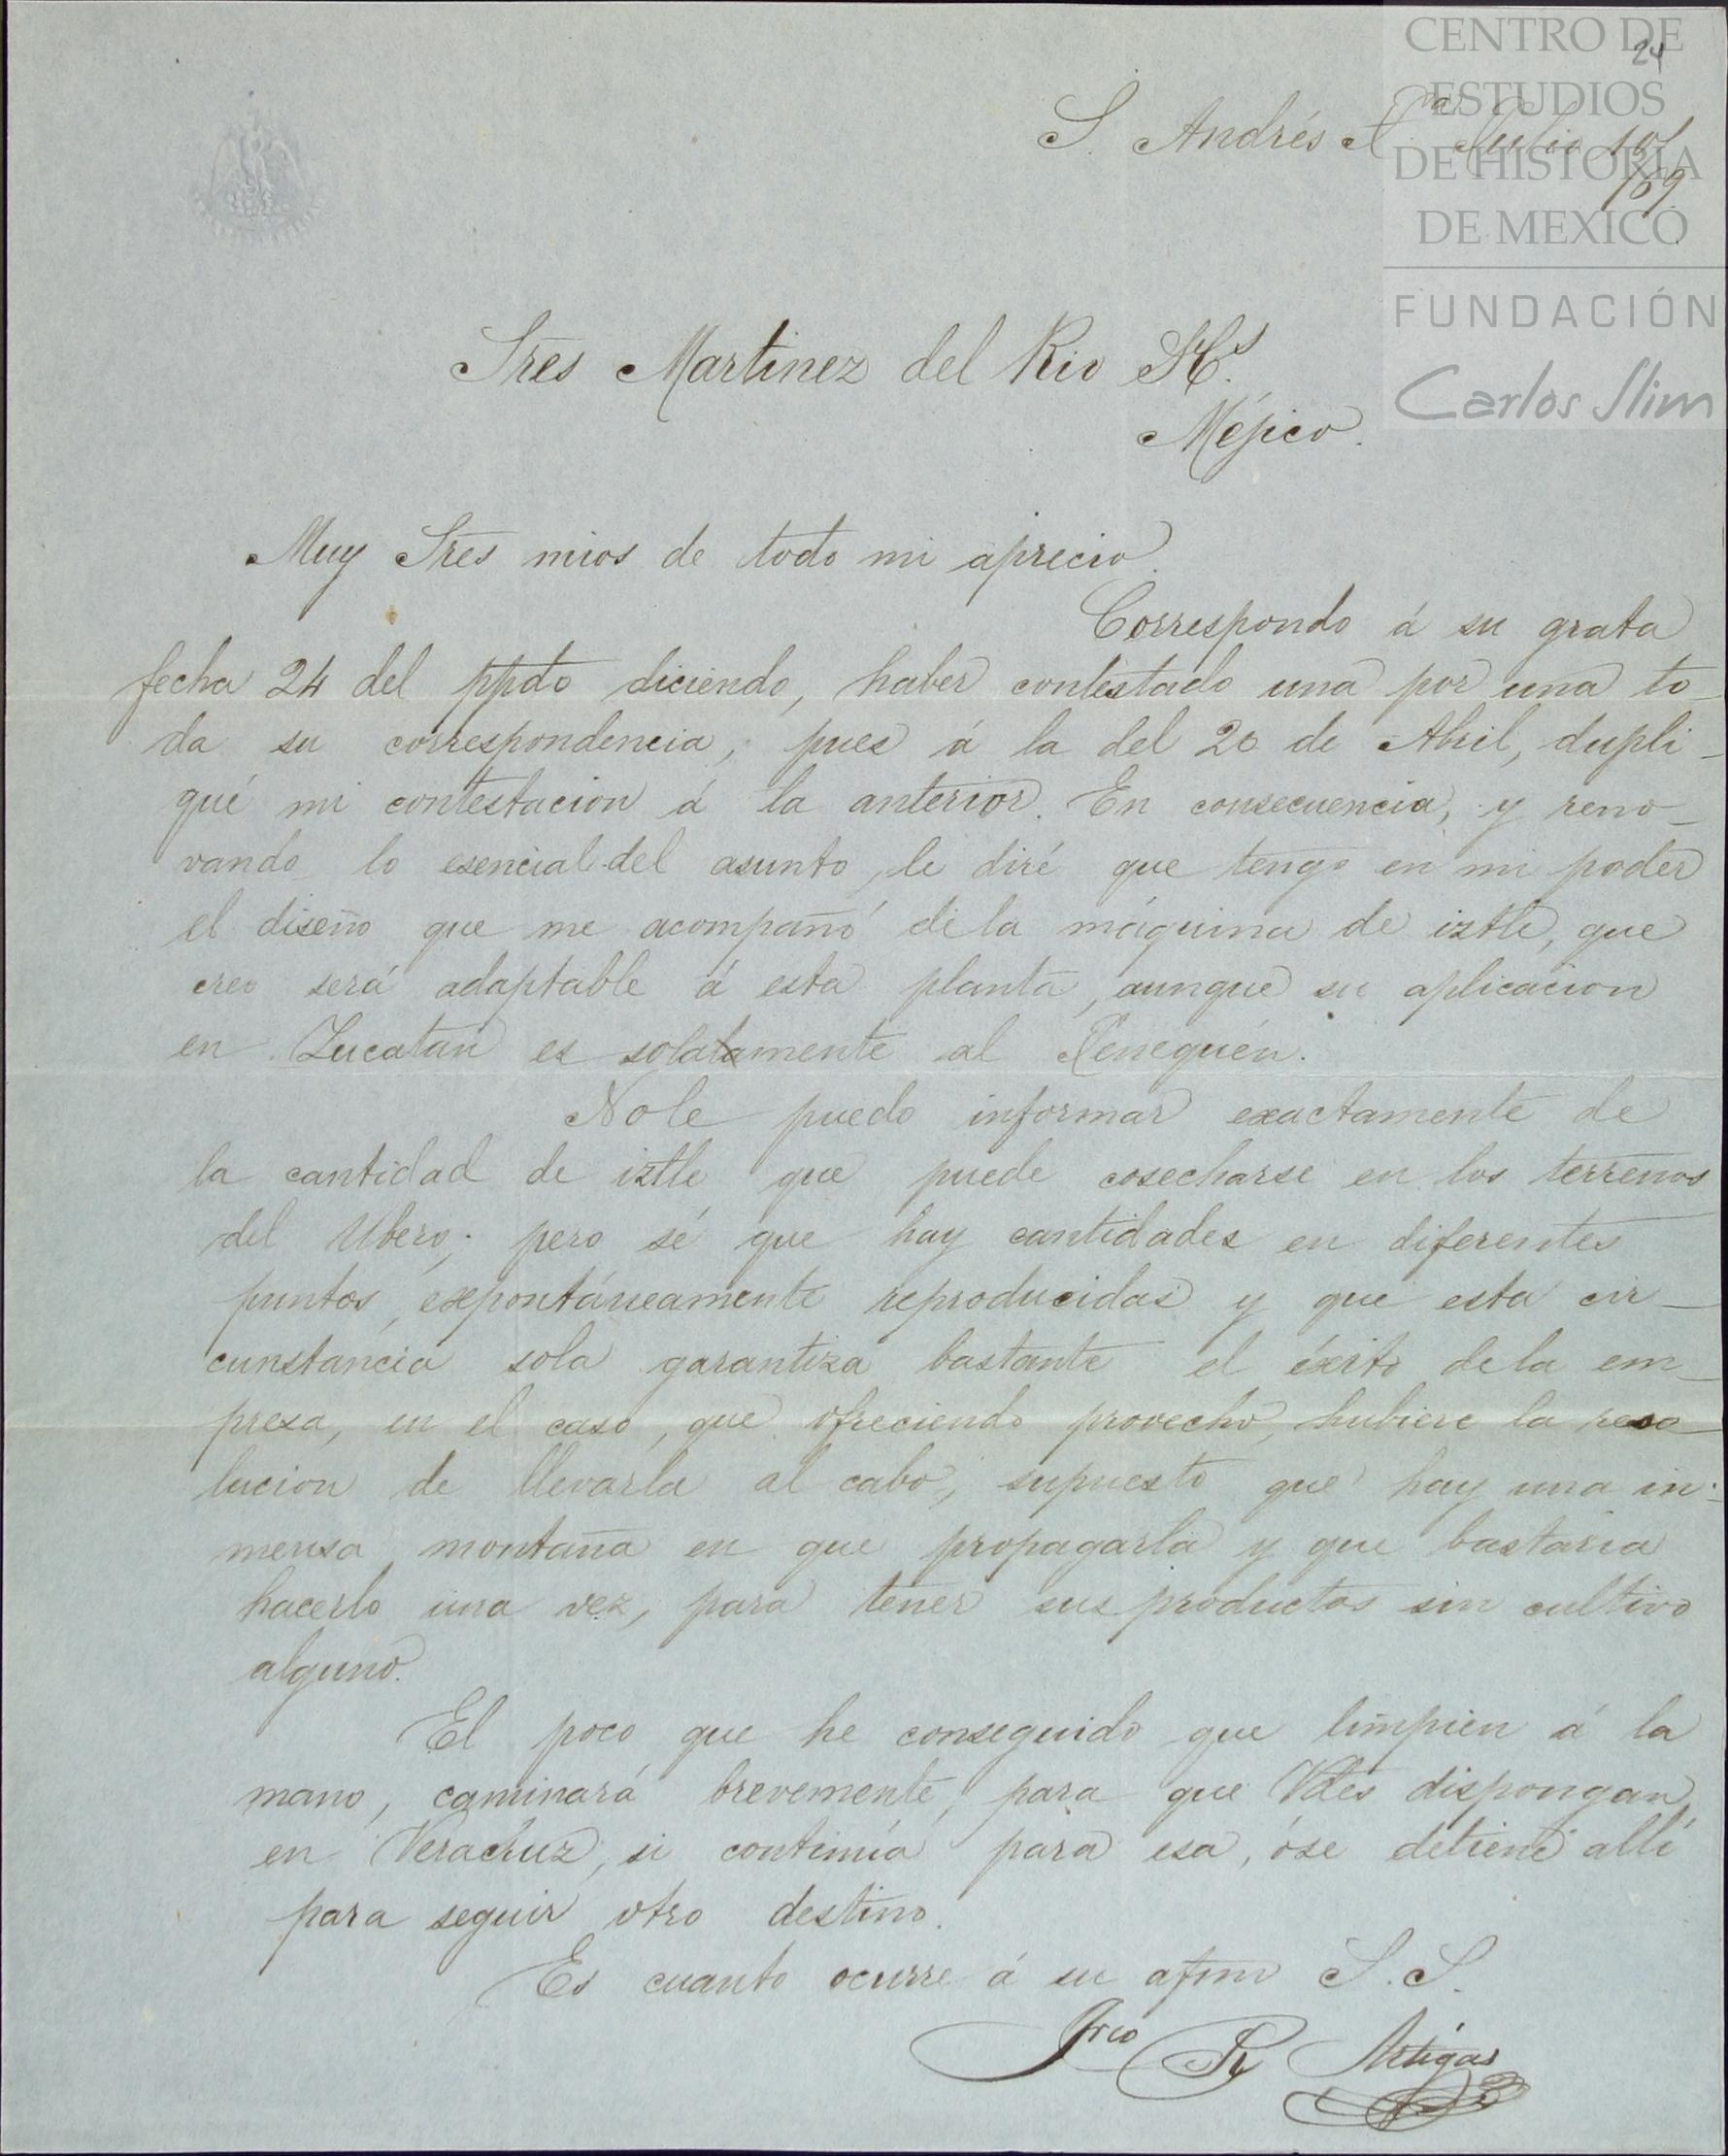 CENTRO DE
ESTUDIOS
DE HISTORIA
DE MEXICO
FUNDACIÓN
Carlos Slim
24
S. Andrés Julio 10/
/69
Sres Martinez del Rio Hs.
Méjico.
Muy Sres mios de todo mi aprecio.
Correspondo á su grata
fecha 24 del ppdo diciendo, haber contestado una por una to-
da su correspondencia, pues á la del 20 de Abril, dupli-
qué mi contestacion á la anterior. En consecuencia, y reno-
vando lo esencial del asunto, le diré que tengo en mi poder
el diseño que me acompañó de la máquina de iztle, que
creo será adaptable á esta planta, aunque su aplicacion
en Yucatan es solatamente al Jenequén.
No le puedo informar exactamente de
la cantidad de iztle que puede cosecharse en los terrenos
del Ubero; pero sé que hay cantidades en diferentes
puntos, expontáneamente reproducidas y que esta cir-
cunstancia sola garantiza bastante el éxito de la em-
presa, en el caso, que ofreciendo provecho, hubiere la reso-
lucion de llevarla al cabo, supuesto que hay una in-
mensa montaña en que propagarla y que bastaria
hacerlo una vez, para tener sus productos sin cultivo
alguno.
El poco que he conseguido que limpien á la
mano, caminará brevemente, para que Vdes dispongan
en Veracruz, si continúa para esa, ó se detiene allí
para seguir otro destino.
Es cuanto ocurre á su afmo S. S.
Frco R Artigas